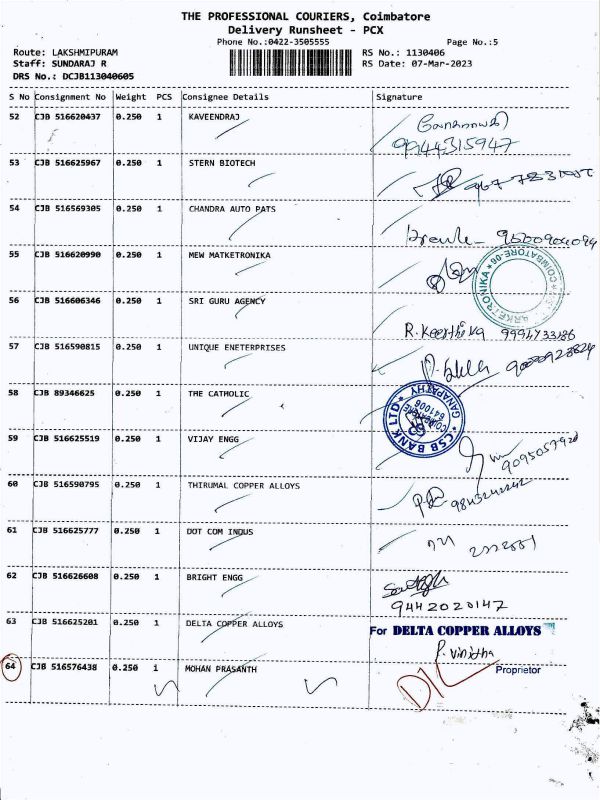 THE PROFESSIONAL COURIERS, Coimbatore
Delivery Runsheet - PCX
Phone No.:0422-3505555 Page No.:5
Route: LAKSHMIPURAM RS No.: 1130406
Staff: SUNDARAJ R RS Date: 07-Mar-2023
DRS No.: DCJB113040605
S No Consignment No Weight PCS Consignee Details Signature
52 CJB 516620437 0.250 1 KAVEENDRAJ
9944315947
53 CJB 516625967 0.250 1 STERN BIOTECH
54 CJB 516569305 0.250 1 CHANDRA AUTO PATS
55 CJB 516620990 0.250 1 MEW MATKETRONIKA
COIMBATORE-06
56 CJB 516606346 0.250 1 SRI GURU AGENCY
R. Keerthika 9994733186
57 CJB 516590815 0.250 1 UNIQUE ENETERPRISES
58 CJB 89346625 0.250 1 THE CATHOLIC
CSB BANK LTD GANAPATHY
COIMBATORE
641006
59 CJB 516625519 0.250 1 VIJAY ENGG
9095057920
60 CJB 516590795 0.250 1 THIRUMAL COPPER ALLOYS
61 CJB 516625777 0.250 1 DOT COM INDUS
62 CJB 516626608 0.250 1 BRIGHT ENGG
9442020147
63 CJB 516625201 0.250 1 DELTA COPPER ALLOYS
For DELTA COPPER ALLOYS
P. Vinitha
Proprietor
64 CJB 516576438 0.250 1 MOHAN PRASANTH
D/L